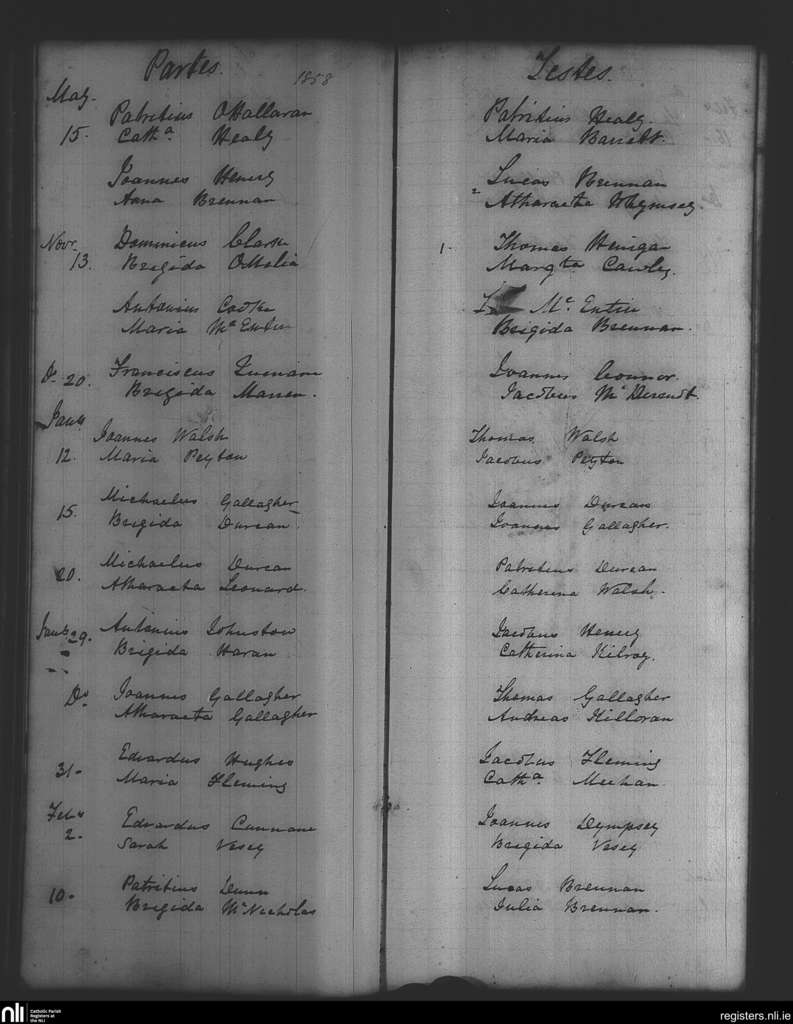 Partes. 1858 Testes.
May.
Patritius OHallaran Patritius Healy.
15. Cath^a. Healy Maria Barrett.
Joannes Henery Lucas Brennan
Anna Brennan Atharacta Dempsey.
Novr. Dominicus Clarke 1- Thomas Henigan
13. Brigida OMalia Marg^ta Cawley.
Antonius Cooke Mc Entire
Maria Mc Entire Brigida Brennan.
Do 20. Franciscus Joannes Connor.
Brigida Jacobus Mc Dermott.
Jany
Joannes Walsh Thomas Walsh
12. Maria Peyton Jacobus Peyton
Michaelus Gallagher Joannes Durcan
15. Brigida Durcan. Joannes Gallagher.
Michaelus Durcan Patritius Durcan
20. Atharacta Leonard. Catherina Walsh.
Jany 29. Antonius Johnston Jacobus Henery
Brigida Haran Catherina Kilroy.
Do Joannes Gallagher Thomas Gallagher
Atharacta Gallagher Andreas Killoran
Edvardus Hughes Jacobus Fleming
31- Maria Fleming Cath^a. Meehan.
Feby Edvardus Cunnane Joannes Dympsey
2. Sarah Vesey Brigida Vesey
Patritius Dunn Lucas Brennan
10. Brigida McNicholas Julia Brennan.
nli Catholic Parish Registers at the NLI
registers.nli.ie